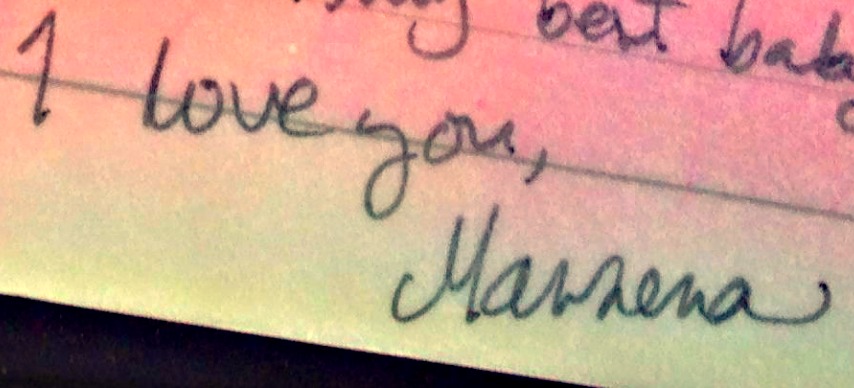 best
I love you,
Marzena